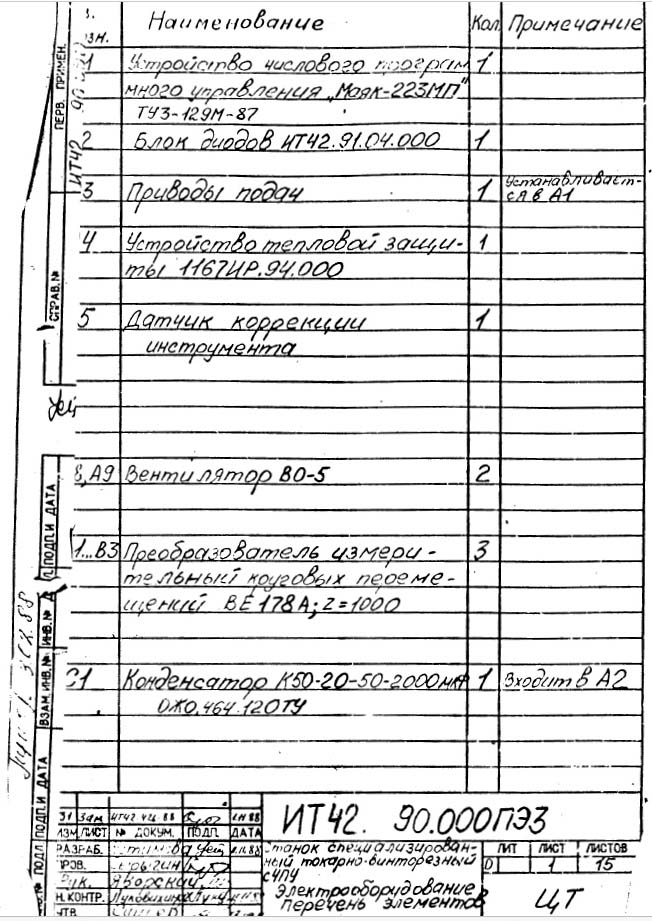 Наименование Кол Примечание
Устройство числового програм 1
много управления „Маяк-223МП"
ТУ3-129М-87
2 Блок диодов ИТ42.91.04.000 1
3 Приводы подач 1 Устанавливает-
ся в А1
4 Устройство тепловой защи- 1
ты 1167ИР.94.000
5 Датчик коррекции 1
инструмента
8,А9 Вентилятор ВО-5 2
1...В3 Преобразователь измери- 3
тельный круговых переме-
щений ВЕ178А; Z=1000
С1 Конденсатор К50-20-50-2000мкФ 1 Входит в А2
ОЖО.464.120ТУ
ПЕРВ. ПРИМЕН.
ИТ42
СПРАВ. №
ПОДП. И ДАТА
ИНВ. №
ВЗАМ. ИНВ. №
ПОДП. И ДАТА
ПОДЛ.
31 Зам ИТ42 88
ИЗМ. ЛИСТ № ДОКУМ. ПОДП. ДАТА
ИТ42. 90.000ПЭ3
РАЗРАБ.
ПРОВ.
Рук. Яворский
Н.КОНТР.
УТВ.
Станок специализирован-
ный токарно-винторезный
с ЧПУ
Электрооборудование
перечень элементов
ЛИТ ЛИСТ ЛИСТОВ
1 15
ЦТ